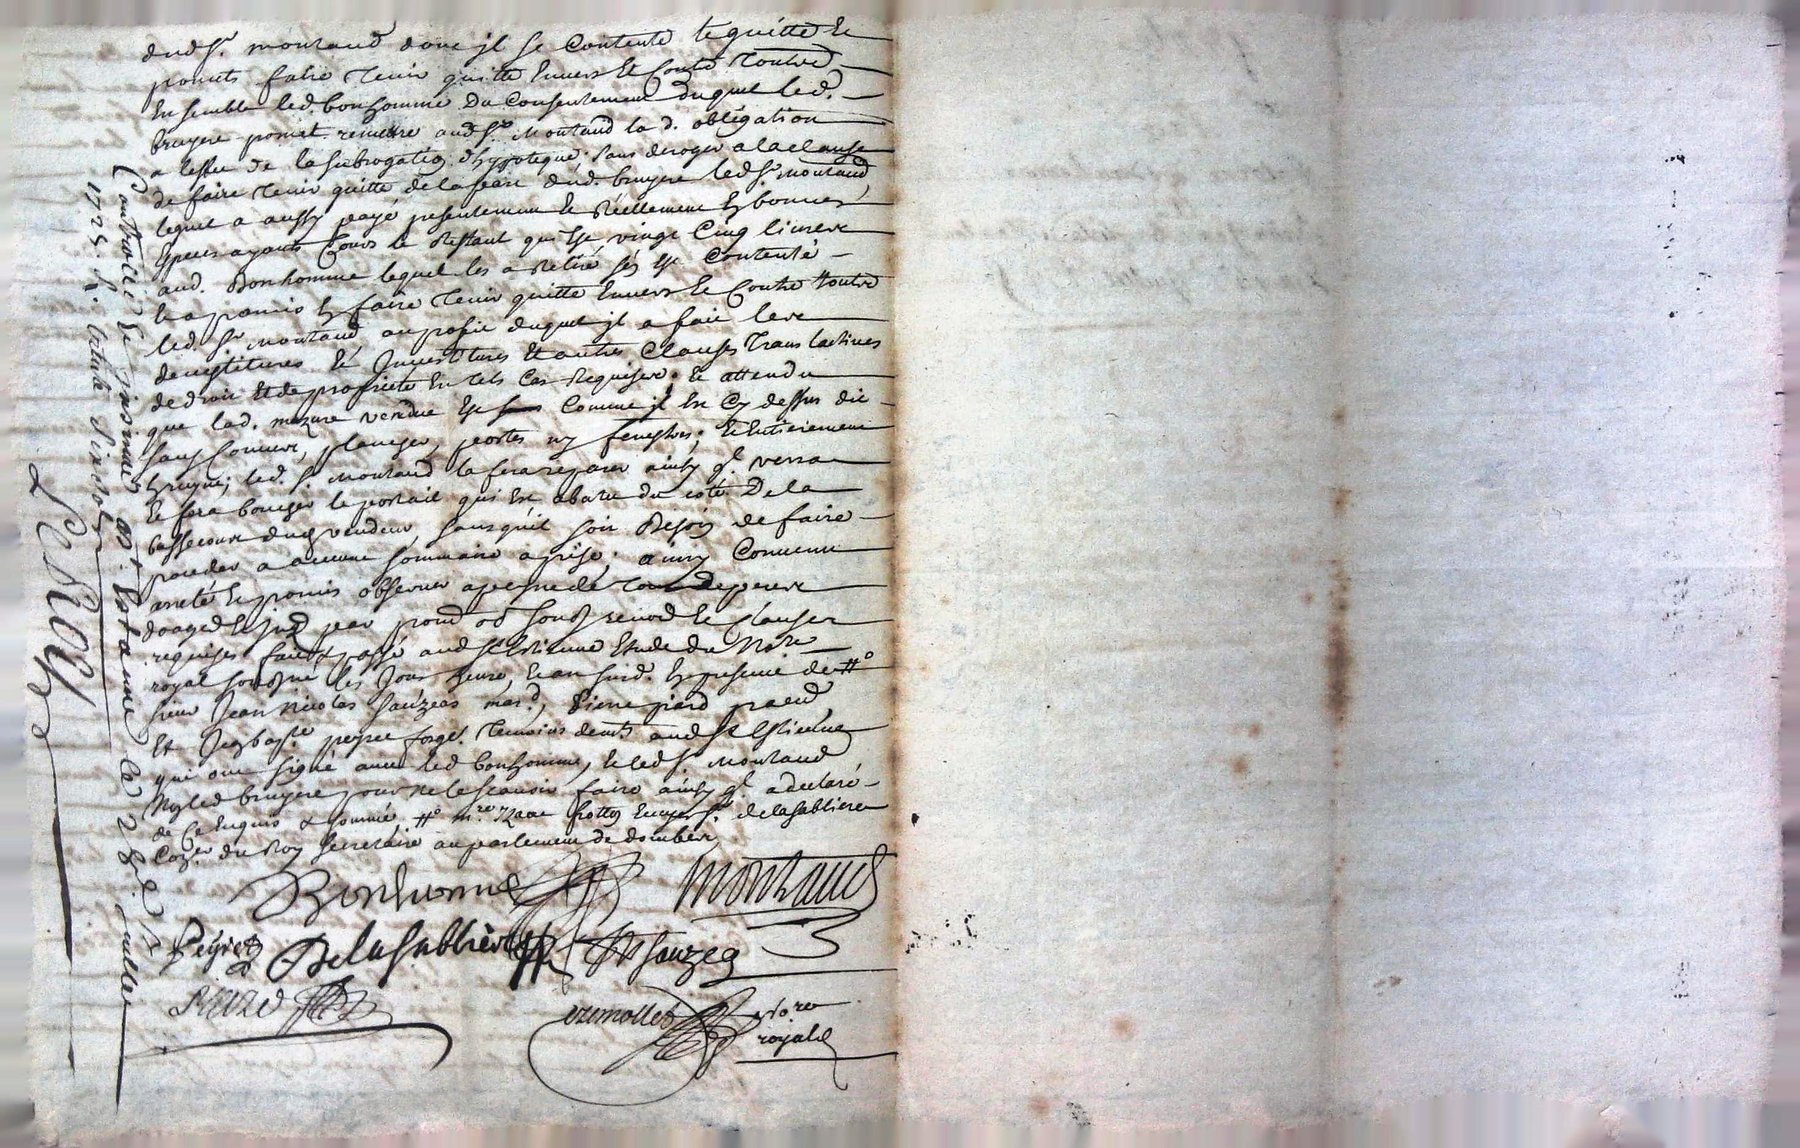 dud Sr. montaud dont il se Contente le quitte Et
promet faire Tenir quitte Envers Et Contre Toutes
Ensemble led. bonhomme Du Consentement duquel led.
bruyere promet remettre aud Sr. Montaud la d. obligation
a leffet de la subrogation d'hypoteque, sans deroger a la clause
de faire Tenir quitte de la part dud. bruyere led Sr montaud,
lequel a aussy payé presentement Et Réellement En bonnes
Especes ayants Cours le Restant qui Est vingt Cinq livres
aud. Bonhomme lequel les a Retiré s'en Est Contenté
Et a promis En faire Tenir quitte Envers Et Contre Toutes
led. Sr Montaud au profit duquel il a fait les
devestitures Et Investitures Et autres Clauses Translatives
de droit Et de proprieté En tels Cas Requises. Et attendu
que lad. mazure vendue Est Comme il Est Cy dessus dit
sans Couvert, plancher, portes ny fenestres, Et Entierement
led. Sr. Montaud la fera reparer ainsy ql. verra
Et fera boucher le portail qui Est abatu du coté De la
bassecour dud vendeur sans qu'il soit Besoin de faire
proceder a aucune sommaire aprise; ainsy Convenu
arreté Et promis observer a peyne de Tous despens
clauses
requises fait & passé aud St Estienne Etude du Nore
royal soussigné les Jour heure, Et an susd. En presence de
sieur Jean Nicolas Sauzeas mard., Pierre
Et Jean bapte. peyret forgr. Temoins demts aud St Estienne
qui ont signé avec led bonhomme, Et led Sr Montaud
Non led bruyere pour ne le scavoir faire ainsy ql. a declaré
de Ce Enquis & sommé mre. Izaac Escuyer Sr. delasabliere
Coner. du Roy secretaire au parlement de dombes
Bonhomme Montaud
Peyret Delasabliere Sauzea
Nore
royal
Controllé Et insinué a St. Estienne le 28e
1725. R.